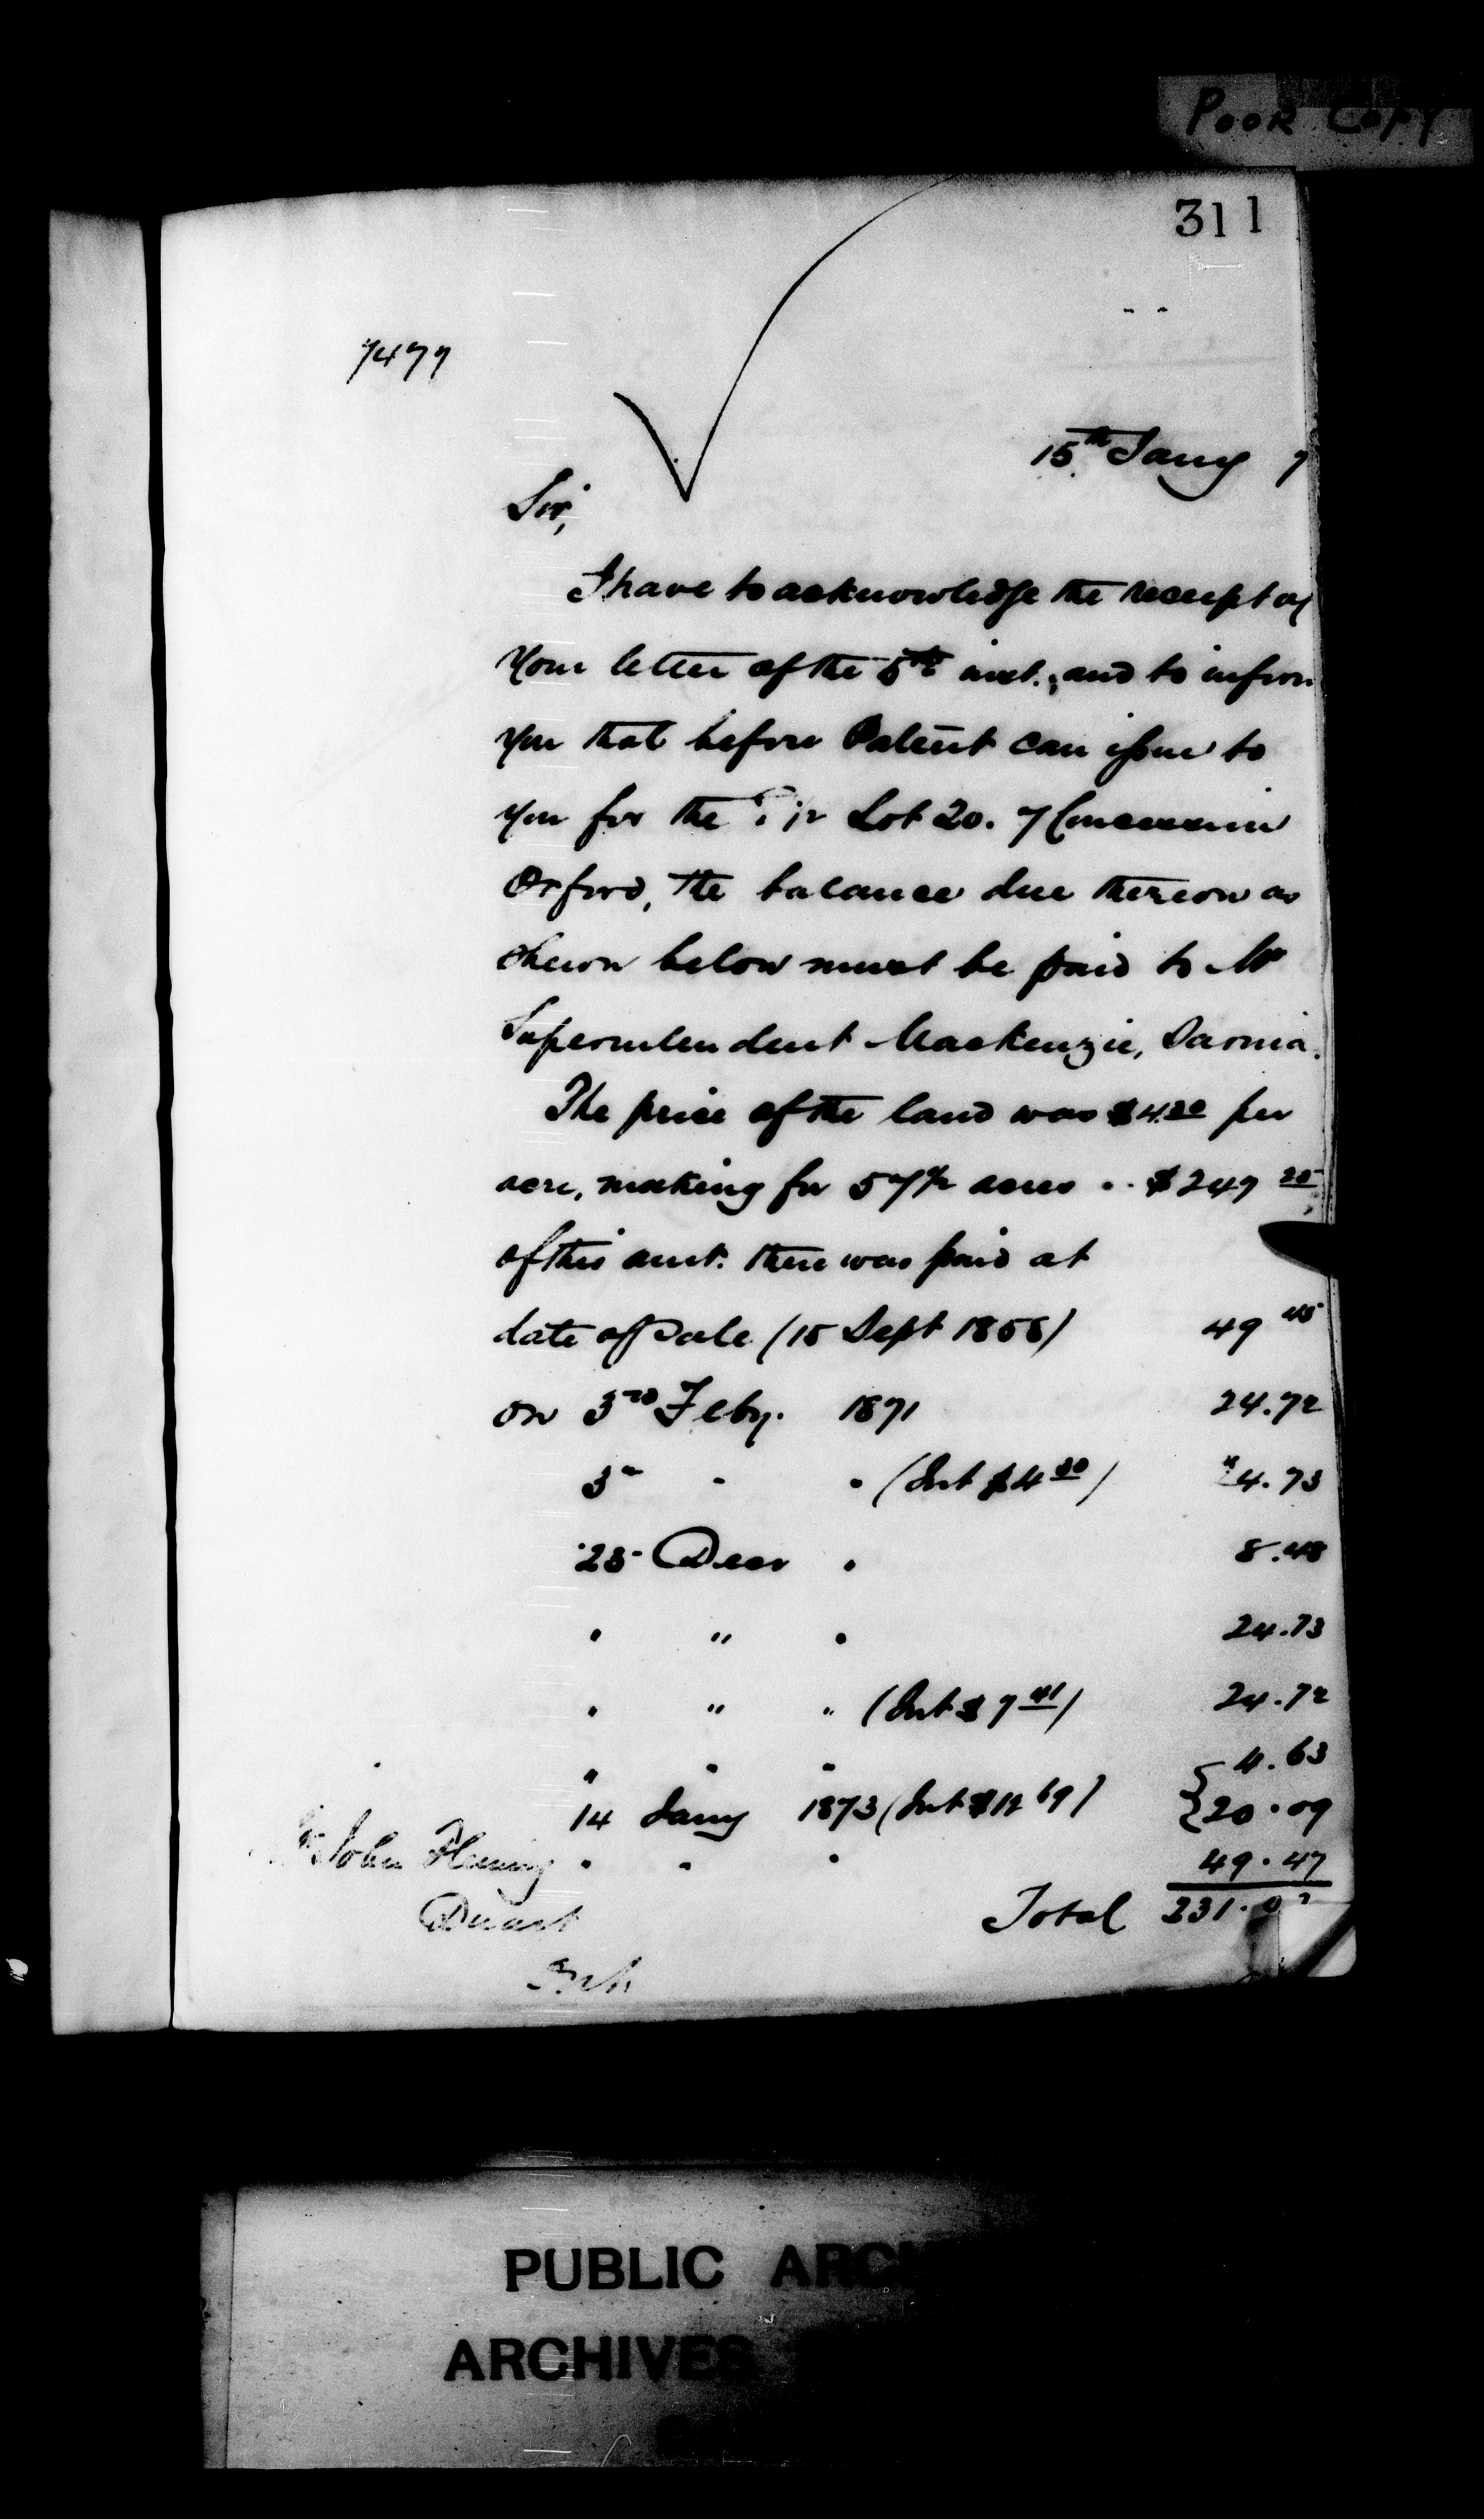 POOR COPY
311
7477
15th Jany 7
Sir,
I have to acknowledge the receipt of
your letter of the 5th inst., and to inform
you that before Patent can issue to
you for the Lot 20. 7 Concession
Orford, the balance due thereon as
shewn below must be paid to Mr
Superintendent Mackenzie, Sarnia.
The price of the land was $4.30 per
acre, making for 57½ acres .. $247 25
of this amt. there was paid at
date of Sale (15 Sept 1858) 49 45
on 3rd Feby. 1871 24.72
3rd " " (Int $4 30) 4.73
23 Decr " 8.48
" " " 24.73
" " " (Int $7 41) 24.72
" " " 4.63
14 Jany 1873 (Int $12 69) 20.09
Mr John Fleming " " " 49.47
Duart Total 231.0
PUBLIC ARCH
ARCHIVES